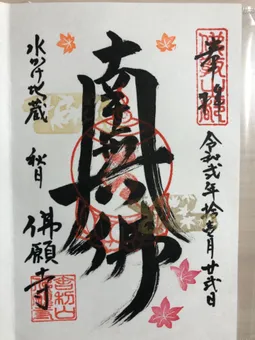 奉拝
令和弐年拾壱月廿弐日
南無佛
水かけ地蔵 秋月
佛願寺